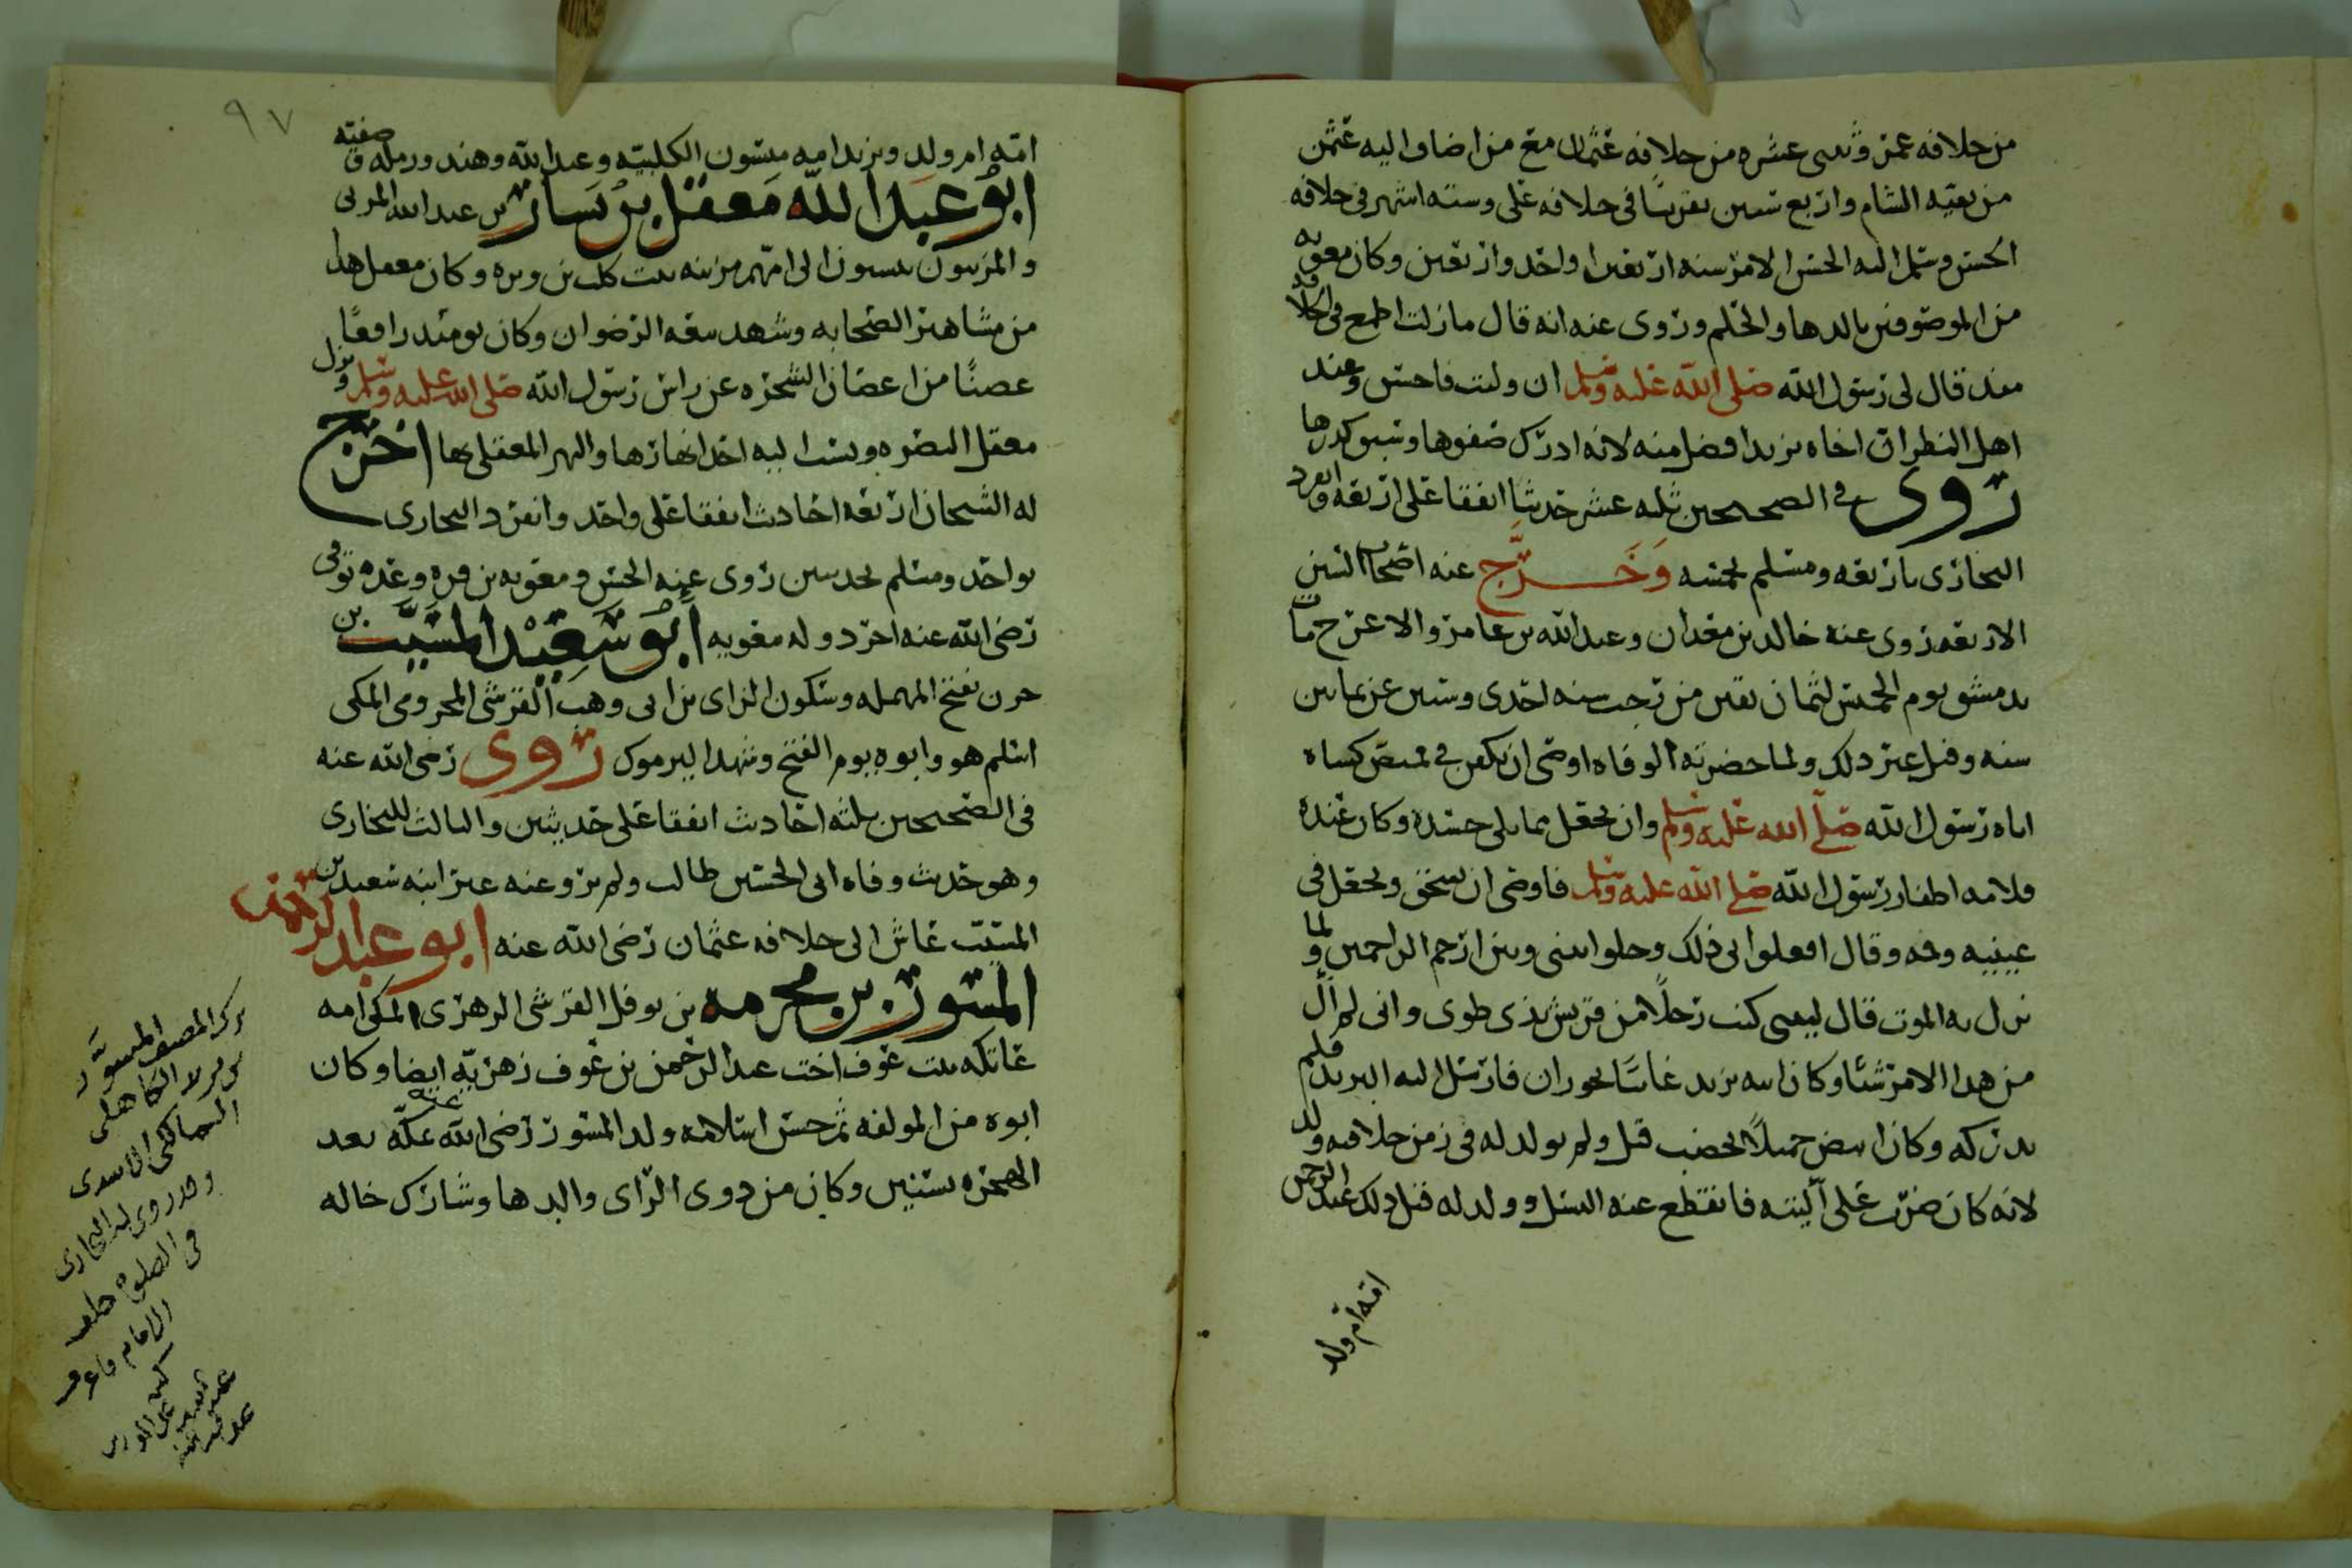 من خلافه عمر وثنتى عشره من خلافه عثمان مع من اضاف اليه عثمن
من بقيه الشام واربع سنين تقريبًا فى خلافه على وسته اشهر فى خلافه
الحسن وسلم اليه الحسن الامر سنه اربعين او احد واربعين وكان معويه
من الموصوفين بالدها والحلم وروى عنه انه قال مازلت اطمع فى الخلافه
منذ قال لى رسول الله صلى الله عليه وسلم ان وليت فاحسن وعند
اهل النظر ان اخاه يزيد افضل منه لانه ادرك صفوها وسبق كدرها
روى فى الصحيحين ثلثه عشر حديثا اتفقا على اربعه وانفرد
البخارى باربعه ومسلم بخمسه وَخَرَّج عنه اصحاب السنن
الاربعه روى عنه خالد بن معدان وعبد الله بن عامر والاعرج مات
بدمشق يوم الخميس لثمان بقين من رجب سنه احدى وستين عن ثمانين
سنه وقيل غير ذلك ولما حضرته الوفاه اوصى ان يكفن فى قميص كساه
اياه رسول الله صلى الله عليه وسلم وان يجعل مما يلى جسده وكان عنده
قلامه اظفار رسول الله صلى الله عليه وسلم فاوصى ان تسحق وتجعل فى
عينيه وفمه وقال افعلوا بى ذلك وخلوا بينى وبين ارحم الراحمين ولما
نزل به الموت قال ليتنى كنت رجلًا من قريش بذى طوى وانى لم ال
من هذا الامر شئا وكان ابنه يزيد غائبًا بحوران فارسل اليه البريد فلم
يدركه وكان ابيض جميلًا يخضب قيل ولم يولد له فى زمن خلافته ولد
لانه كان ضرب على اليته فانقطع عنه النسل وولد له قبل ذلك عبد الرحمن
امه ام ولد
٩٧
امه ام ولد ويزيد امه ميسون الكلبيه وعبد الله وهند ورمله وصفيه
ابو عبد الله معقل بن يسار بن عبد الله المزنى
والمزنيون ينسبون الى امهم مزينه بنت كلب بن وبره وكان معقل هذا
من مشاهير الصحابه وشهد بيعه الرضوان وكان يومئذ رافعًا
غصنًا من اغصان الشجره عن راس رسول الله صلى الله عليه وسلم ونزل
معقل البصره وينسب اليه احد انهارها والنهر المعقلى بها اخرج
له الشيخان اربعه احاديث اتفقا على واحد وانفرد البخارى
بواحد ومسلم بحديثين روى عنه الحسن ومعويه بن قره وغده توفى
رضى الله عنه اخر دوله معويه ابو سعيد المسيب بن
حزن بفتح المهمله وسكون الزاى بن ابى وهب القرشى المخزومى المكى
اسلم هو وابوه يوم الفتح وشهد اليرموك روى رضى الله عنه
فى الصحيحين ثلثه احاديث اتفقا على حديثين والثالث للبخارى
وهو حديث وفاه ابى الحسين طالب ولم يرو عنه غير ابنه سعيد بن
المسيب عاش الى خلافه عثمان رضى الله عنه ابو عبد الرحمن
المسور بن مخرمه بن نوفل القرشى الزهرى المكى امه
عاتكه بنت عوف اخت عبد الرحمن بن عوف زهريه ايضا وكان
ابوه من المولفه ثم حسن اسلامه ولد المسور رضى الله عنه بمكه بعد
الهجره بسنتين وكان من ذوى الراى والدها وشارك خاله
ترك المصنف المسوَّر
بن يزيد الكاهلى
المالكى الاسدى
وقد روى له البخارى
فى الصلوه خلف
الامام